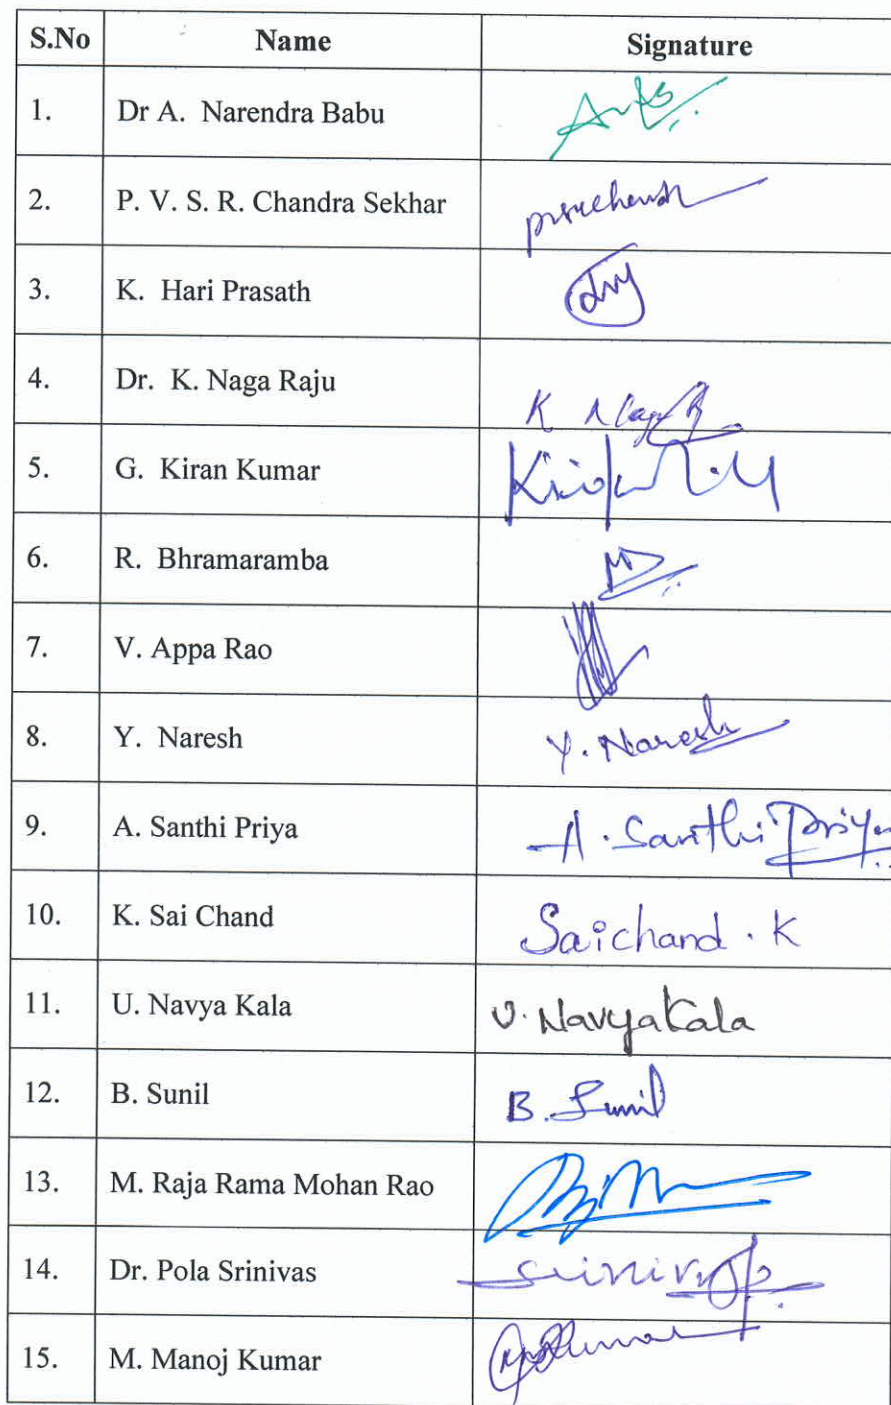 S.No Name Signature
1. Dr A. Narendra Babu
2. P. V. S. R. Chandra Sekhar
3. K. Hari Prasath
4. Dr. K. Naga Raju K
5. G. Kiran Kumar
6. R. Bhramaramba
7. V. Appa Rao
8. Y. Naresh Y. Naresh
9. A. Santhi Priya A. Santhi Priya
10. K. Sai Chand Saichand . K
11. U. Navya Kala U. NavyaKala
12. B. Sunil B. Sunil
13. M. Raja Rama Mohan Rao
14. Dr. Pola Srinivas
15. M. Manoj Kumar